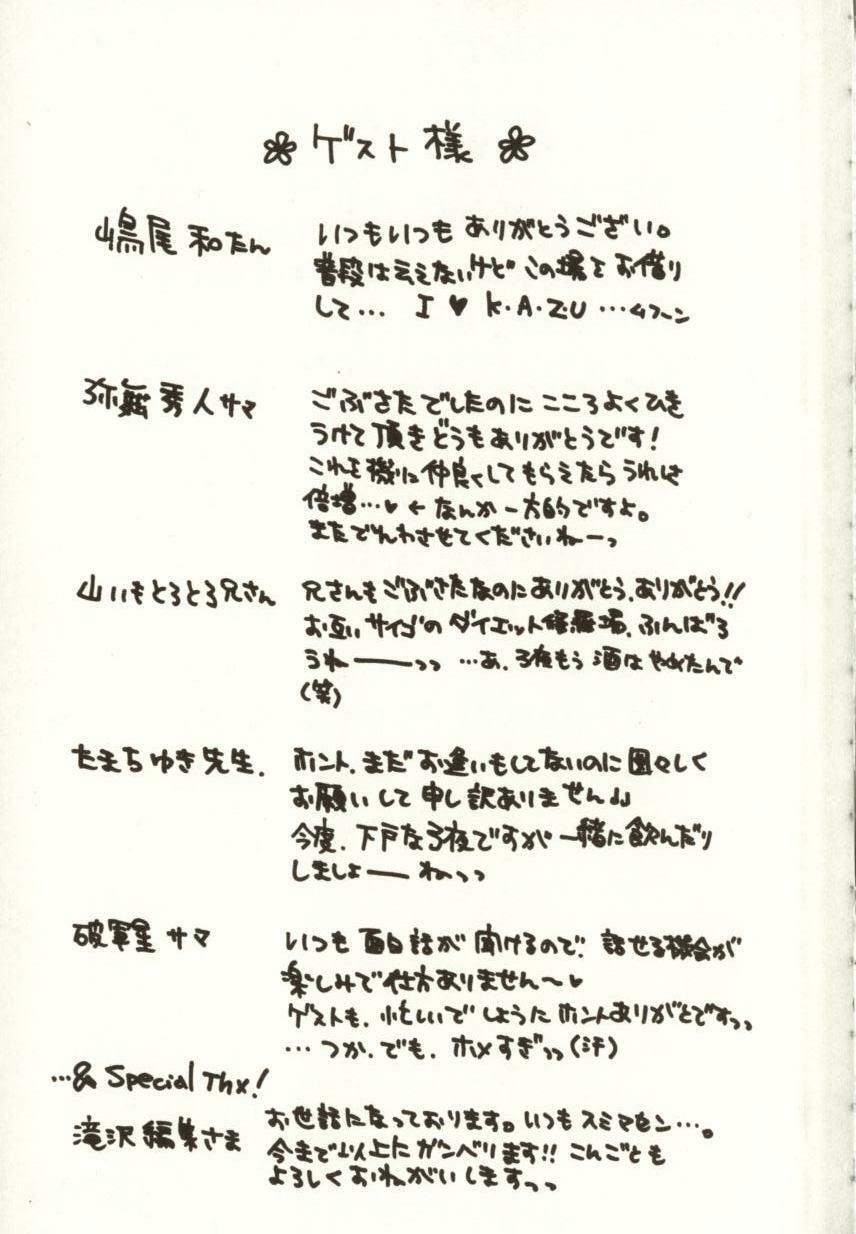 ゲスト様
嶋尾和たん
いつもいつもありがとうござい。
普段は云えないけど この場をお借り
して… I ♥ K・A・Z・U …ムフーン
弥舞秀人サマ
ごぶさたでしたのに こころよくひき
うけて頂きどうもありがとうです!
これを機に仲良くしてもらえたら うれしさ
倍増…♥ ← なんか一方的ですよ。
またでんわさせてくださいねーっ
山いもとろとろ兄さん
兄さんもごぶさたなのにありがとう、ありがとう!!
お互いサイゴのダイエット修羅場、ふんばろ
うねーーっっ …あ、子夜もう酒はやめたんで
(笑)
たまちゆき先生.
ホント、まだお逢いもしてないのに図々しく
お願いして申し訳ありません
今度、下戸な子夜ですが一緒に飲んだり
しましょーー ねっっ
破軍星サマ
いつも面白話が聞けるので、話せる機会が
楽しみで仕方ありません〜♥
ゲストも、忙しいでしょうにホントありがとですっっ
…つか、でも、ホメすぎっっ(汗)
…& Special Thx!
滝沢編集さま
お世話になっております。いつもスミマセン…。
今まで以上にガンバります!! こんごとも
よろしくおねがいしますっっ